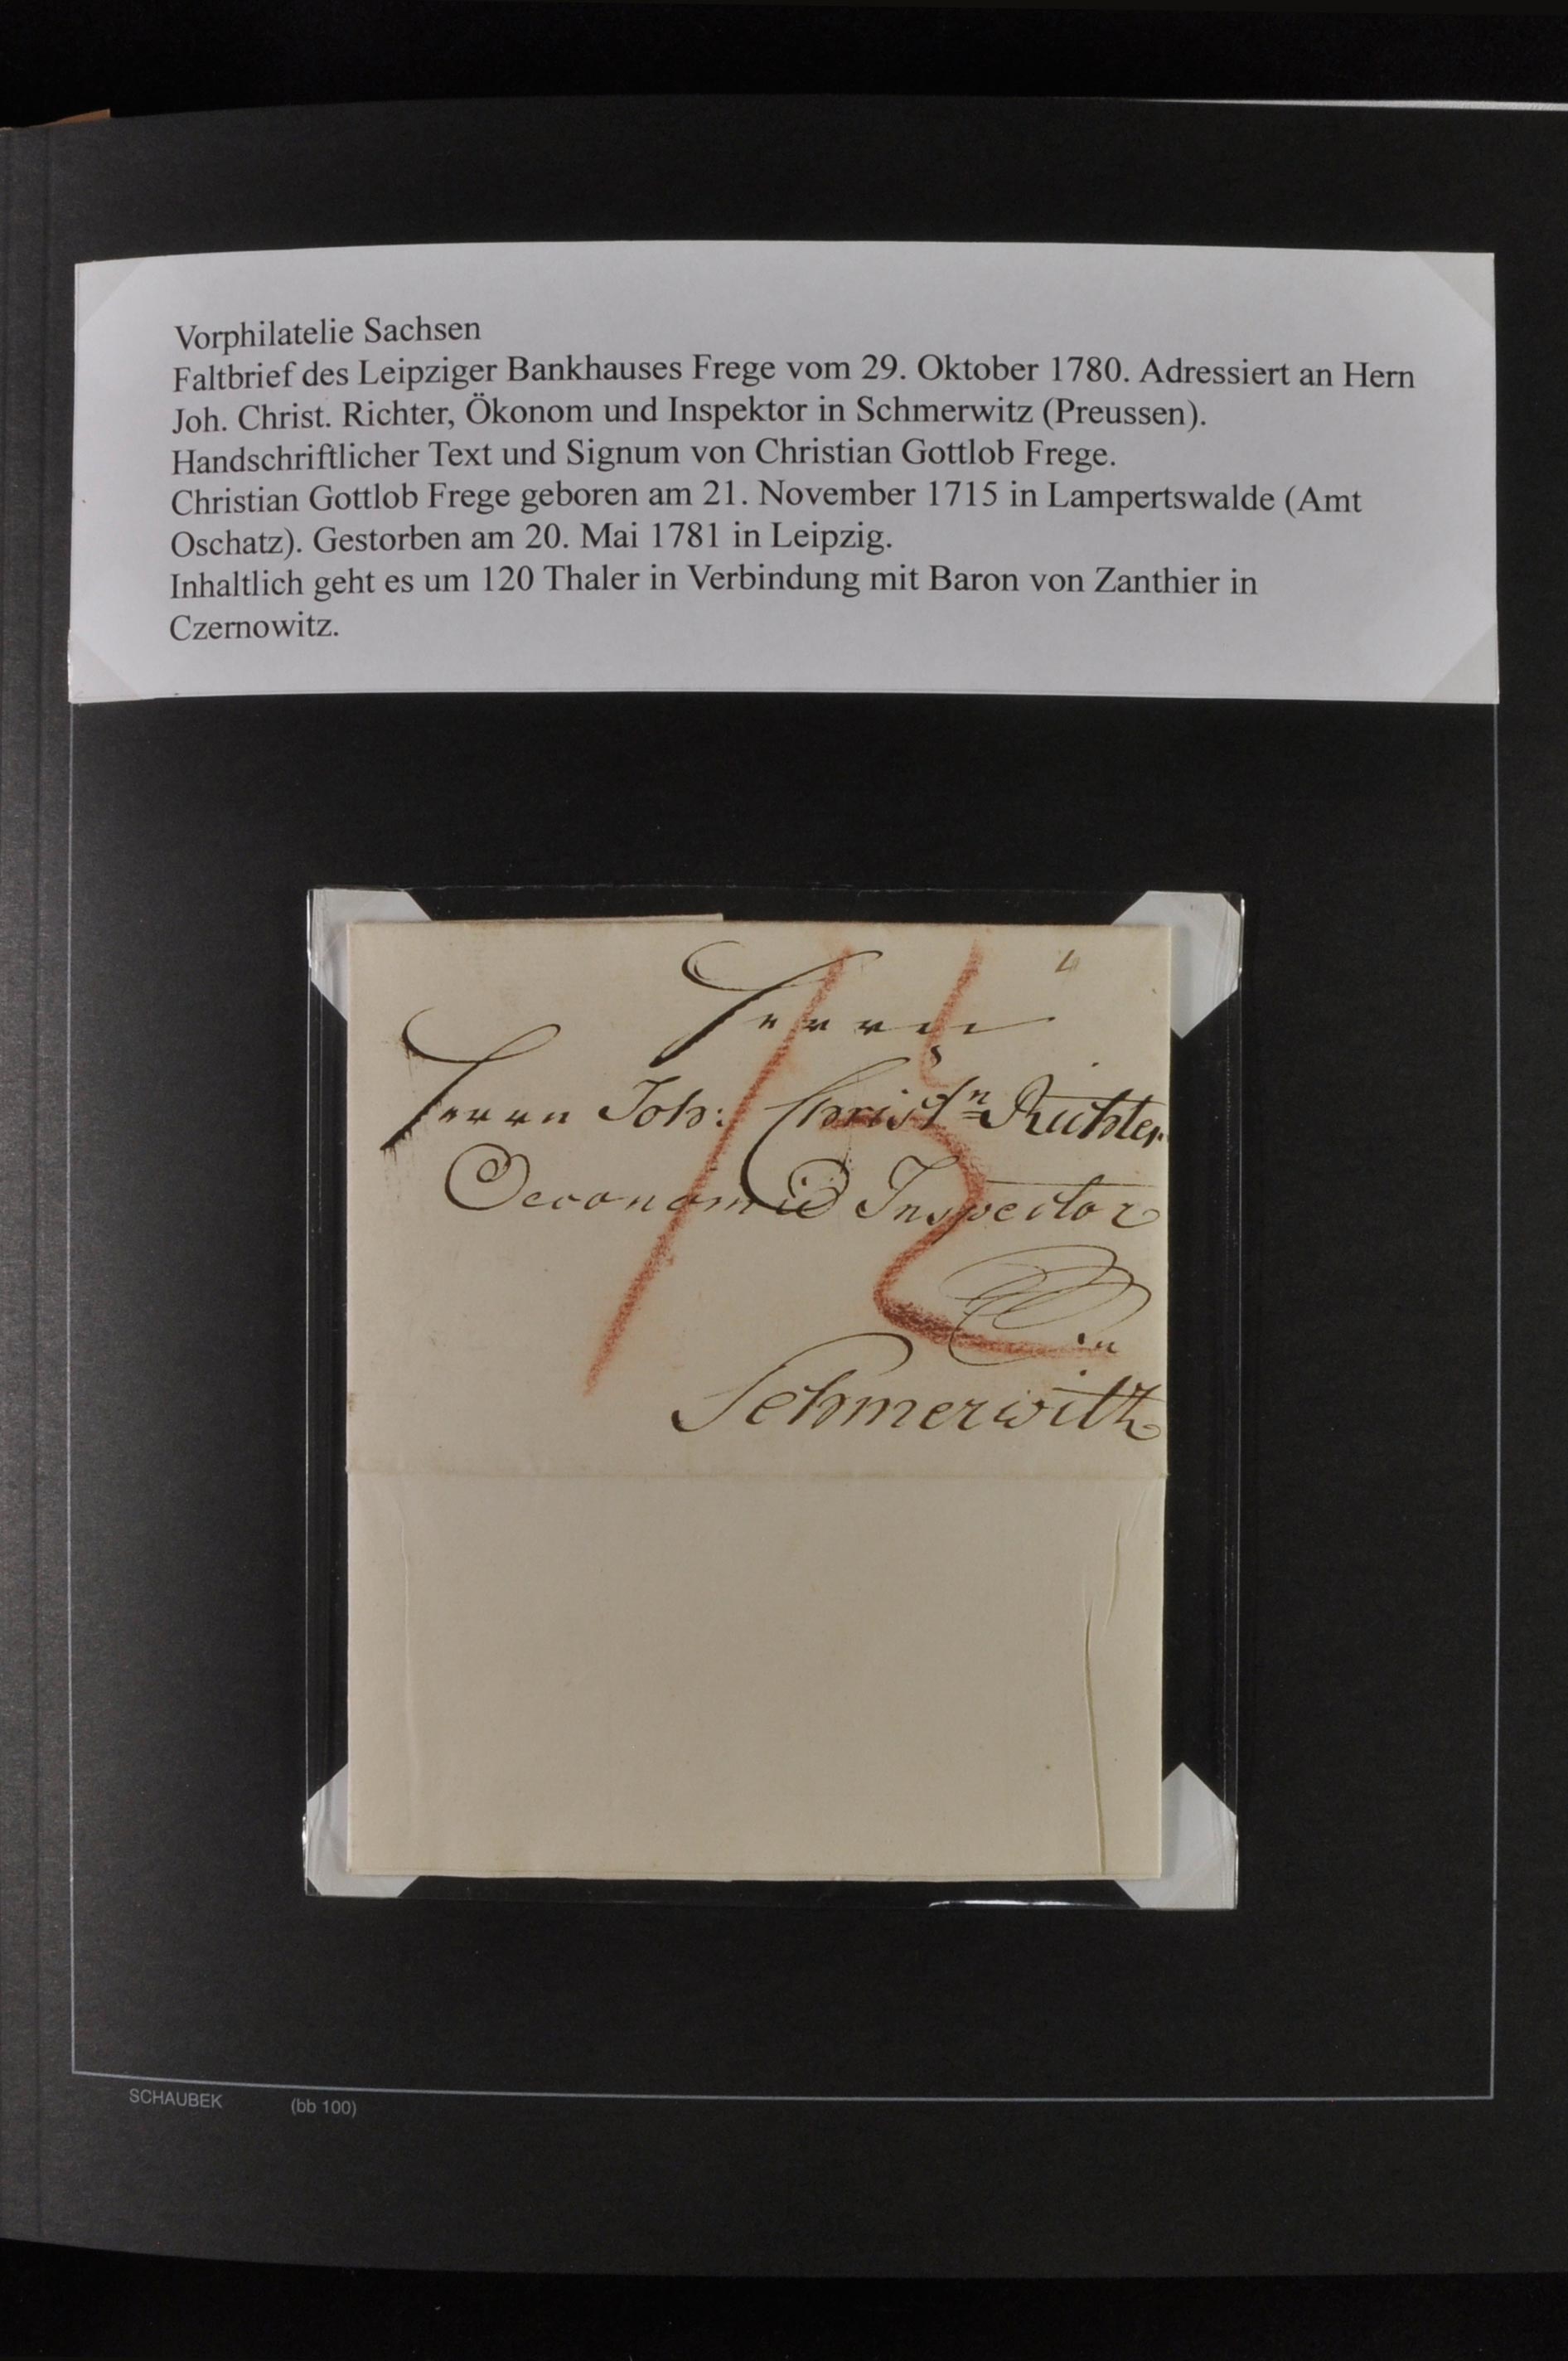 Vorphilatelie Sachsen
Faltbrief des Leipziger Bankhauses Frege vom 29. Oktober 1780. Adressiert an Hern
Joh. Christ. Richter, Ökonom und Inspektor in Schmerwitz (Preussen).
Handschriftlicher Text und Signum von Christian Gottlob Frege.
Christian Gottlob Frege geboren am 21. November 1715 in Lampertswalde (Amt
Oschatz). Gestorben am 20. Mai 1781 in Leipzig.
Inhaltlich geht es um 120 Thaler in Verbindung mit Baron von Zanthier in
Czernowitz.
Herrn
Herrn Joh: Christn Richter
Oeconomie Inspector
in
Schmerwitz
SCHAUBEK (bb 100)